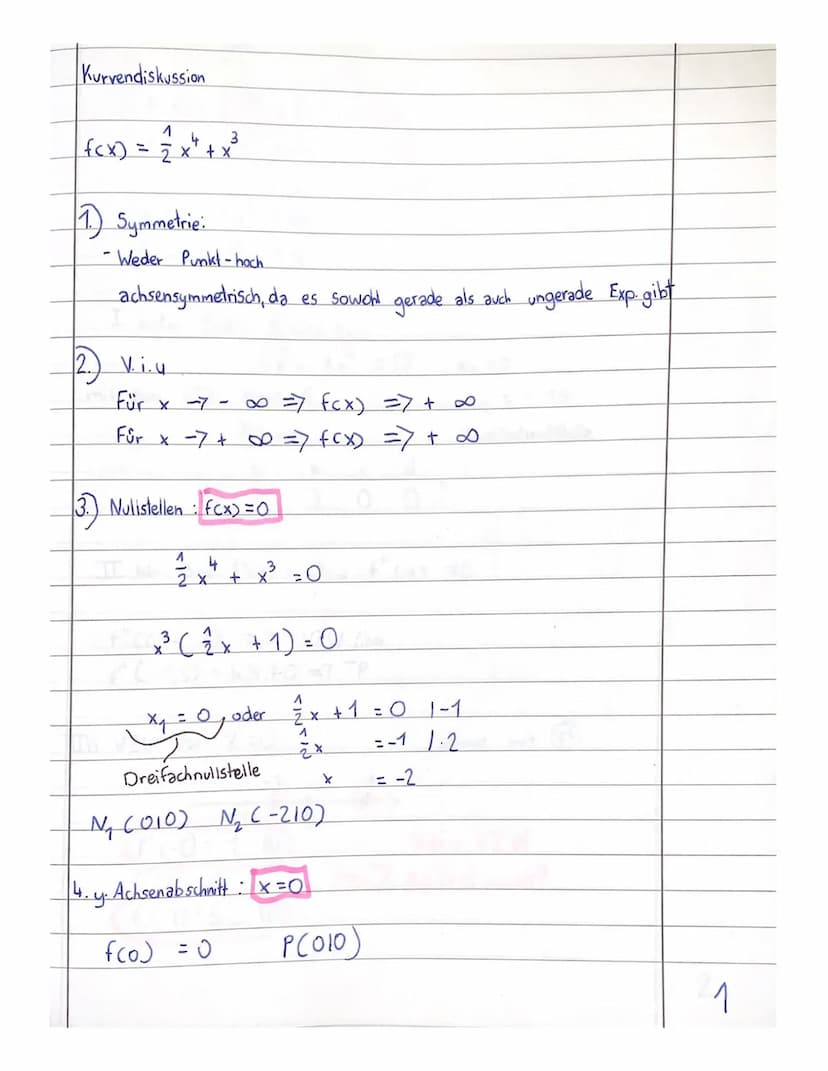 Kurvendiskussion
f(x) = 1/2 x⁴ + x³
1.) Symmetrie:
- Weder Punkt-hoch
achsensymmetrisch, da es sowohl gerade als auch ungerade Exp. gibt
2.) V.i.u
Für x -> - ∞ => f(x) => + ∞
Für x -> + ∞ => f(x) => + ∞
3.) Nullstellen : f(x) = 0
1/2 x⁴ + x³ = 0
x³ ( 1/2 x + 1) = 0
x₁ = 0, oder 1/2 x + 1 = 0 |-1
1/2 x = -1 |·2
Dreifachnullstelle x = -2
N₁ (0|0) N₂ (-2|0)
4. y-Achsenabschnitt : x=0
f(0) = 0 P(0|0)
1